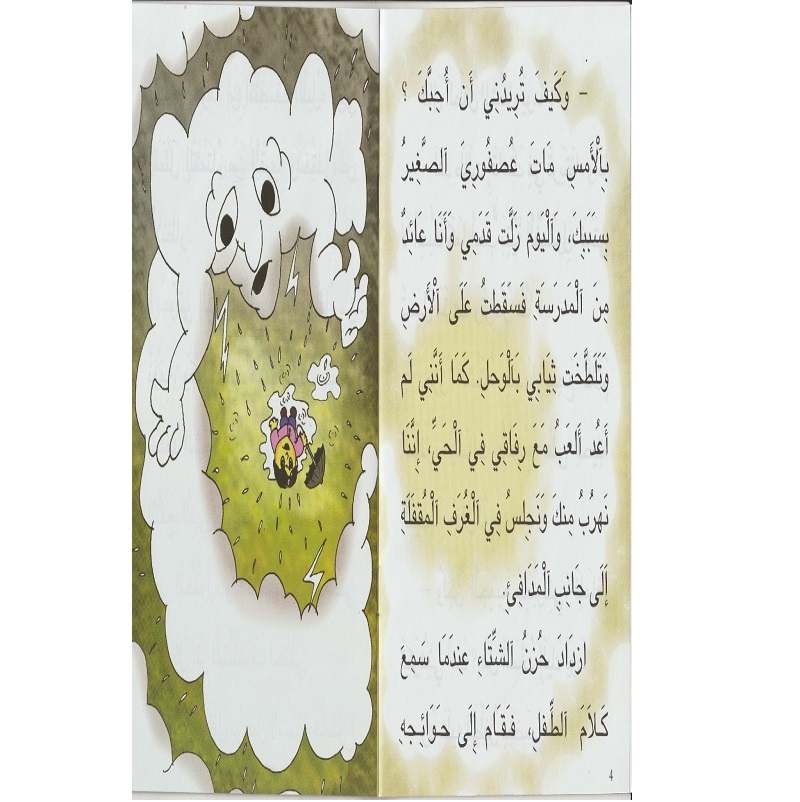 - وَكَيفَ تُرِيدُنِي أَن أُحِبَّكَ ؟
بِاْلأَمسِ مَاتَ عُصفُورِي اَلصَّغِيرُ
بِسَبَبِكَ، وَاَليَومَ زَلَّت قَدَمِي وَأَنَا عَائِدٌ
مِنَ اَلْمَدرَسَةِ فَسَقَطتُ عَلَى اَلْأَرضِ
وَتَلَطَّخَت ثِيَابِي بَالْوَحلِ. كَمَا أَنَّنِي لَم
أَعُد أَلعَبُ مَعَ رِفَاقِي فِي اَلْحَيِّ، إِنَّنَا
نَهرُبُ مِنكَ وَنَجلِسُ فِي اَلْغُرَفِ اَلْمُقفَلَةِ
إِلَى جَانِبِ اَلْمَدَافِئِ.
ازدَادَ حُزنُ اَلشِّتَاءِ عِندَمَا سَمِعَ
كَلَامَ اَلطِّفلِ، فَقَامَ إِلَى حَوَائِجِهِ
4